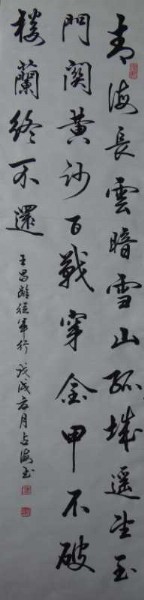 青海長雲暗雪山孤城遥望玉
門関黄沙百戰穿金甲不破
楼蘭終不還
王昌齡從軍行 戊戌春月占海书